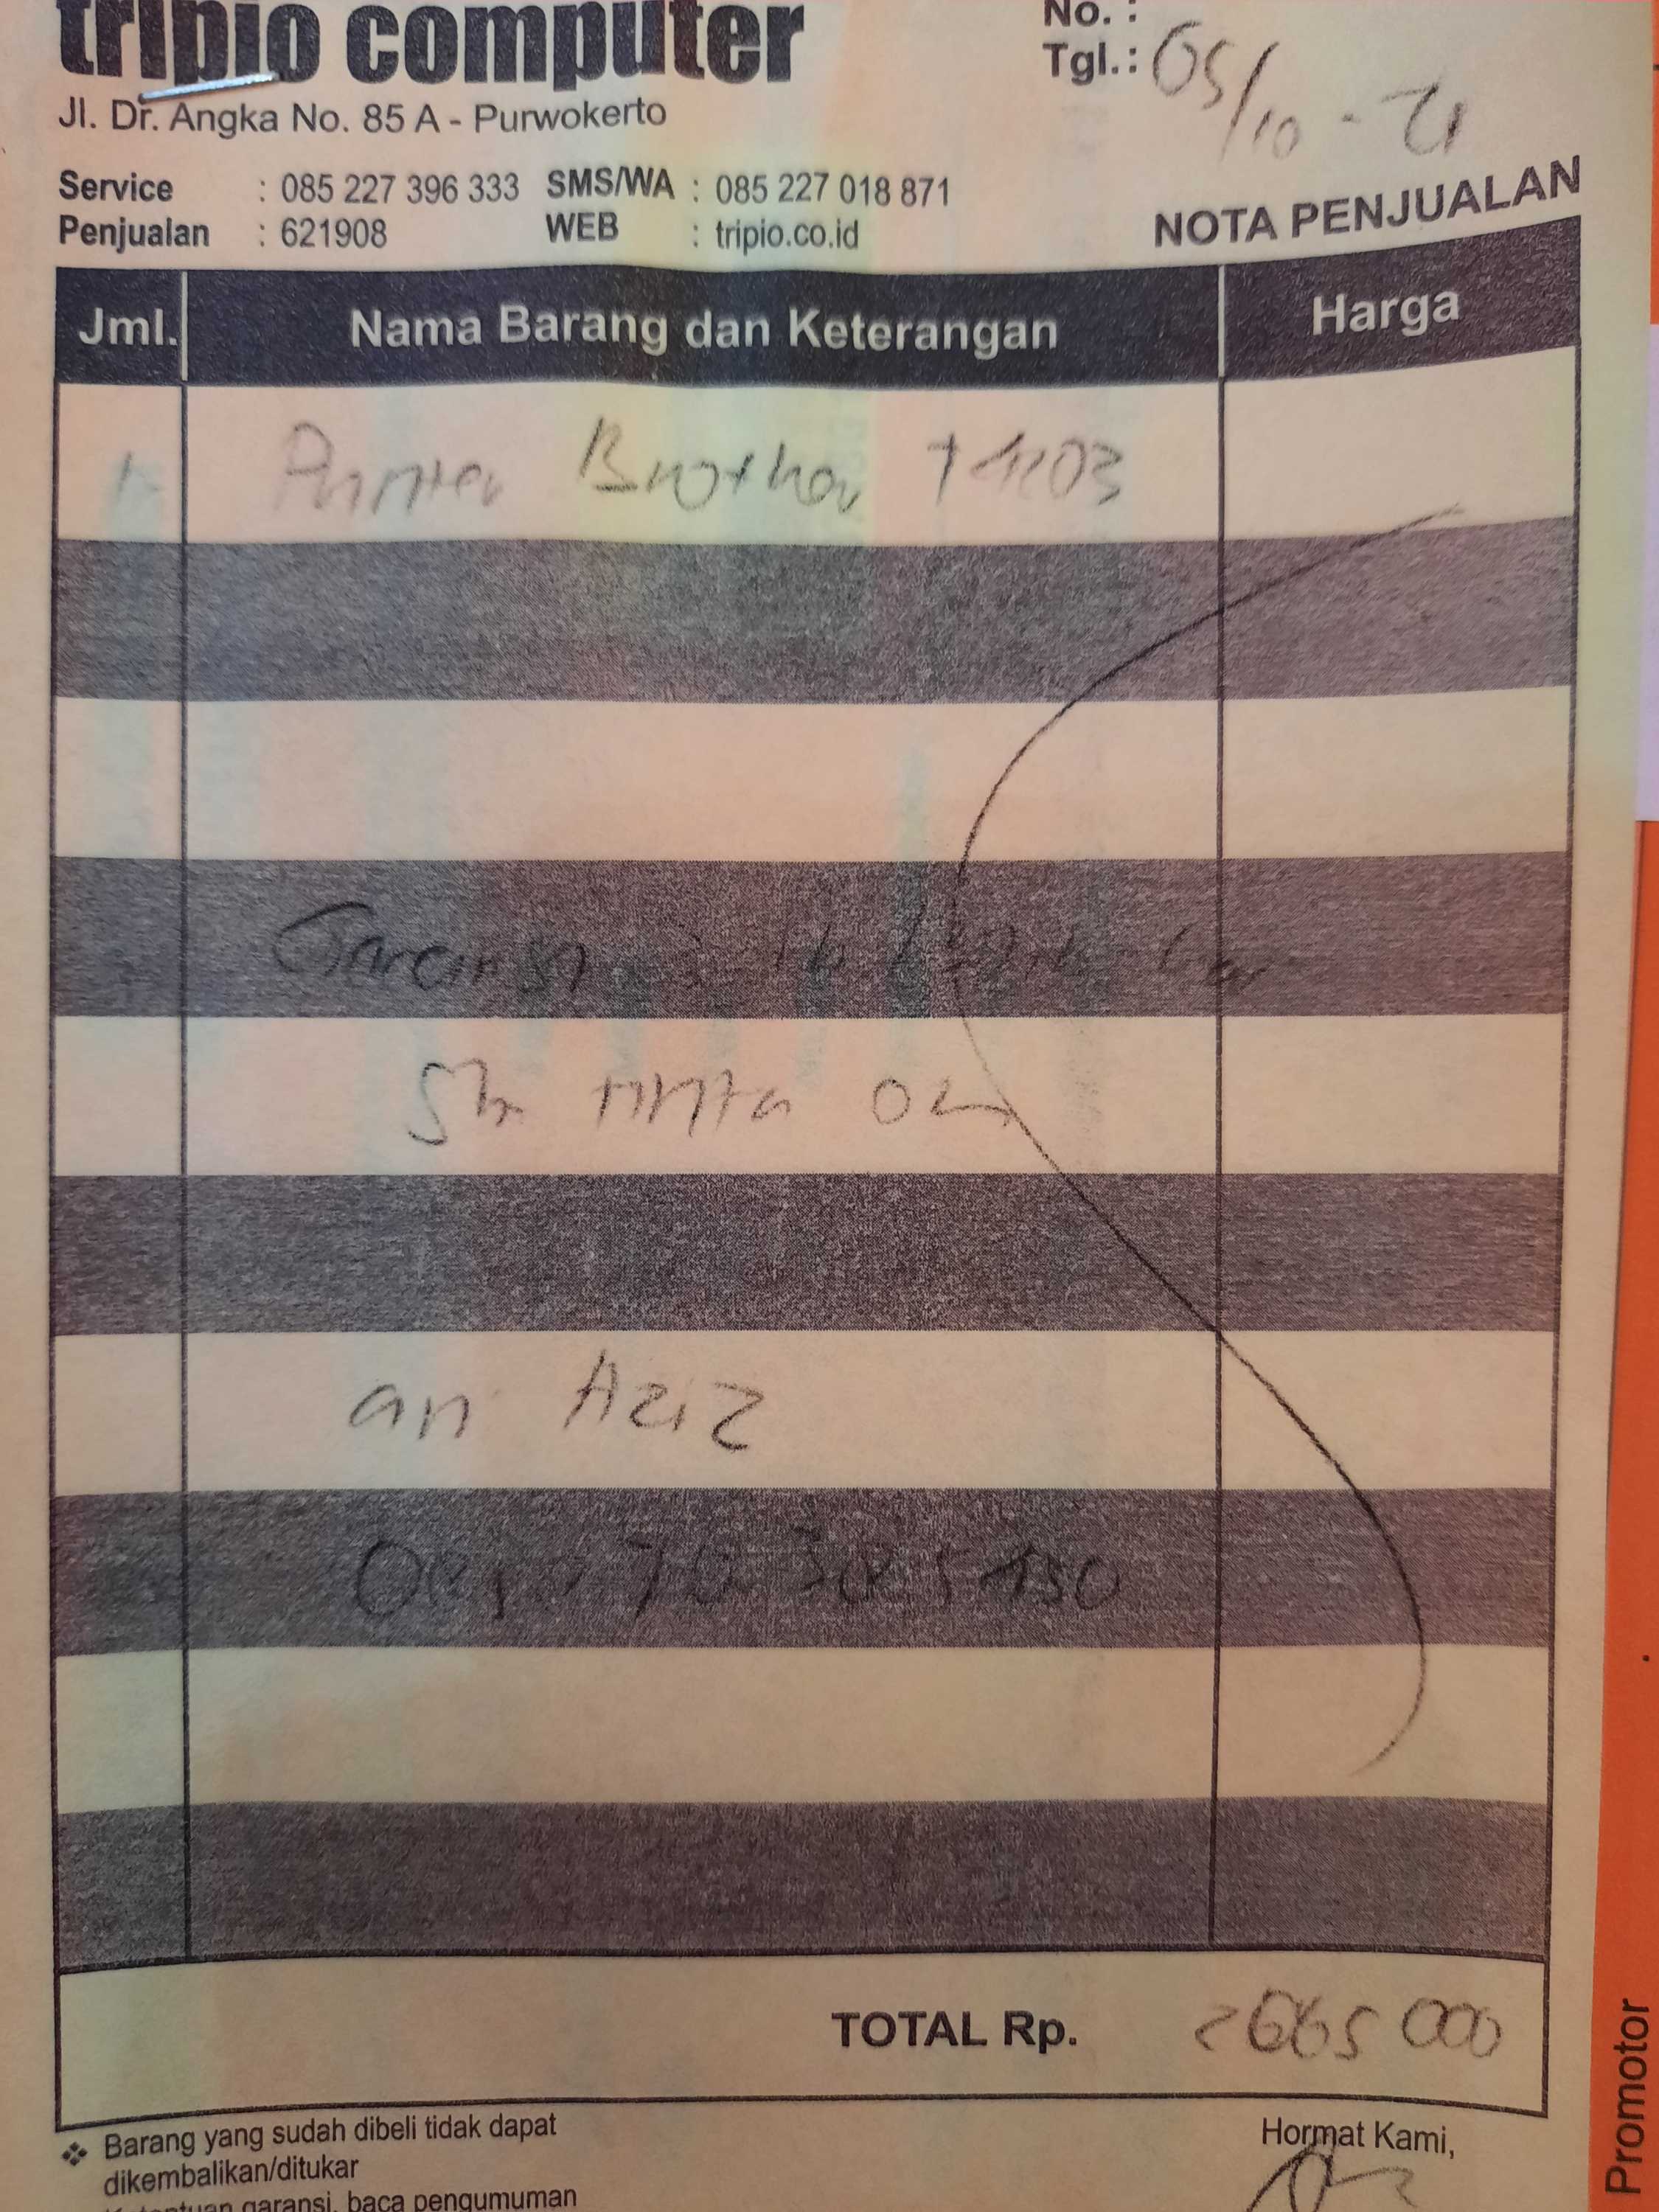 tripio computer
No. :
Tgl. : 05/10 - 21
Jl. Dr. Angka No. 85 A - Purwokerto
Service : 085 227 396 333 SMS/WA : 085 227 018 871
Penjualan : 621908 WEB : tripio.co.id
NOTA PENJUALAN
Jml. Nama Barang dan Keterangan Harga
1 Printer Brother
Garansi
tinta
an Aziz
TOTAL Rp. 2665 000
Barang yang sudah dibeli tidak dapat
dikembalikan/ditukar
Hormat Kami,
Ketentuan garansi, baca pengumuman
Promotor